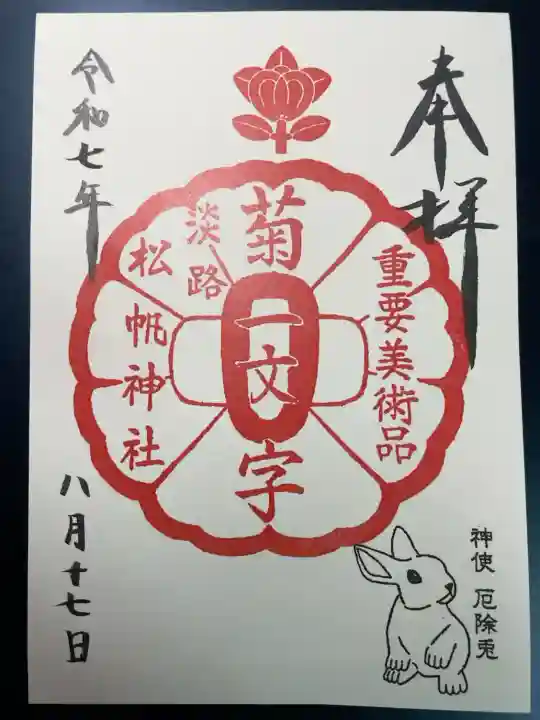 奉拝
重要美術品
菊一文字
淡路
松帆神社
令和七年
八月十七日
神使 厄除兎